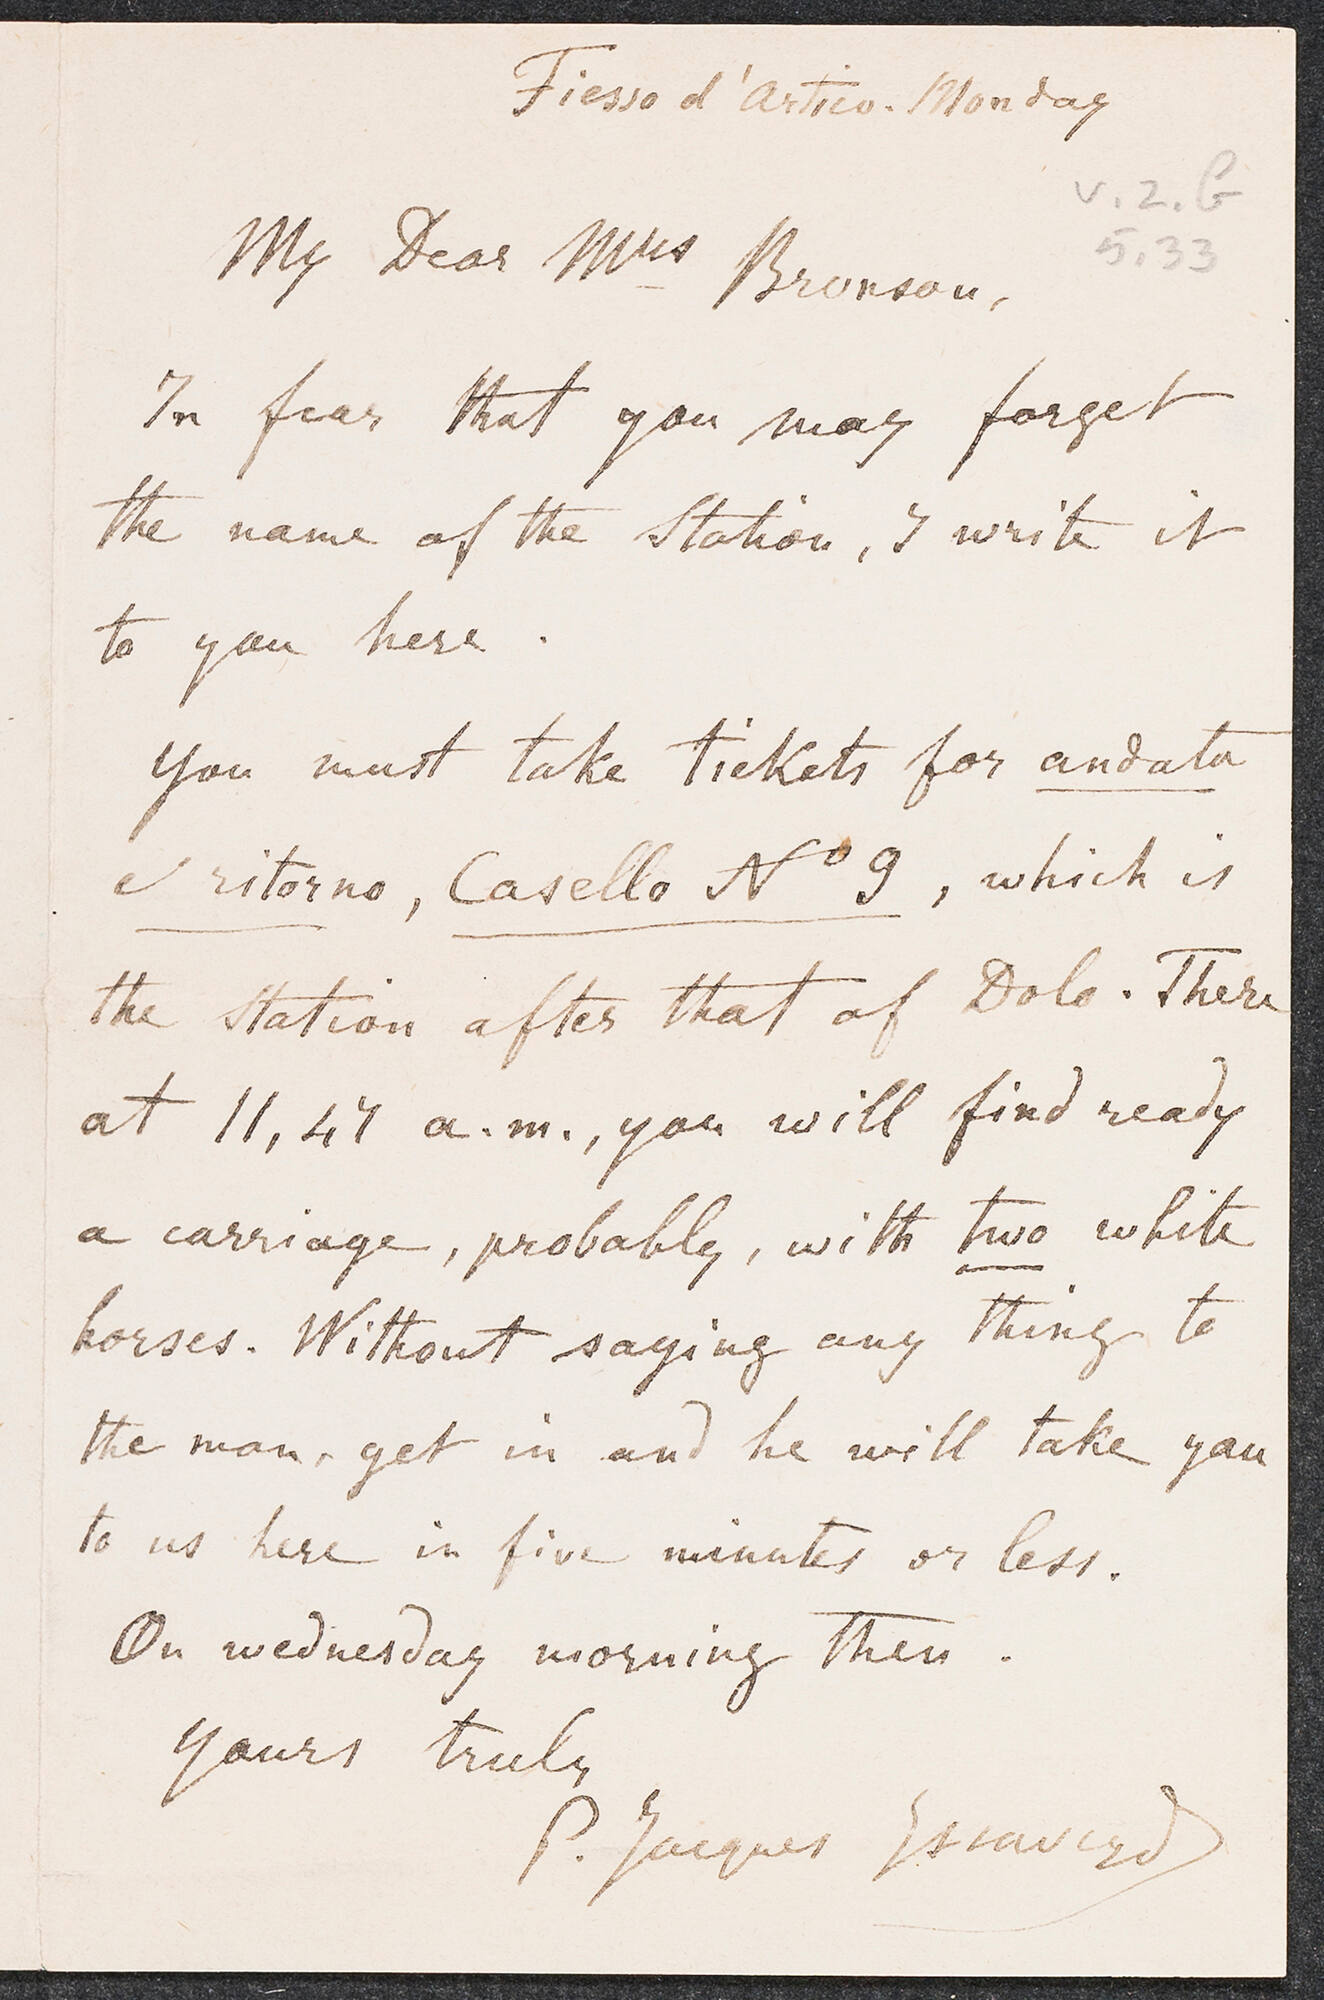 Fiesso d'Artico. Monday
v.2.G
5.33
My Dear Mrs Bronson,
In fear that you may forget
the name of the Station, I write it
to you here.
You must take tickets for andata
e ritorno, Casello No 9, which is
the station after that of Dolo. There
at 11,47 a.m., you will find ready
a carriage, probably, with two white
horses. Without saying any thing to
the man, get in and he will take you
to us here in five minutes or less.
On wednesday morning then.
Yours truly
P. Jacques